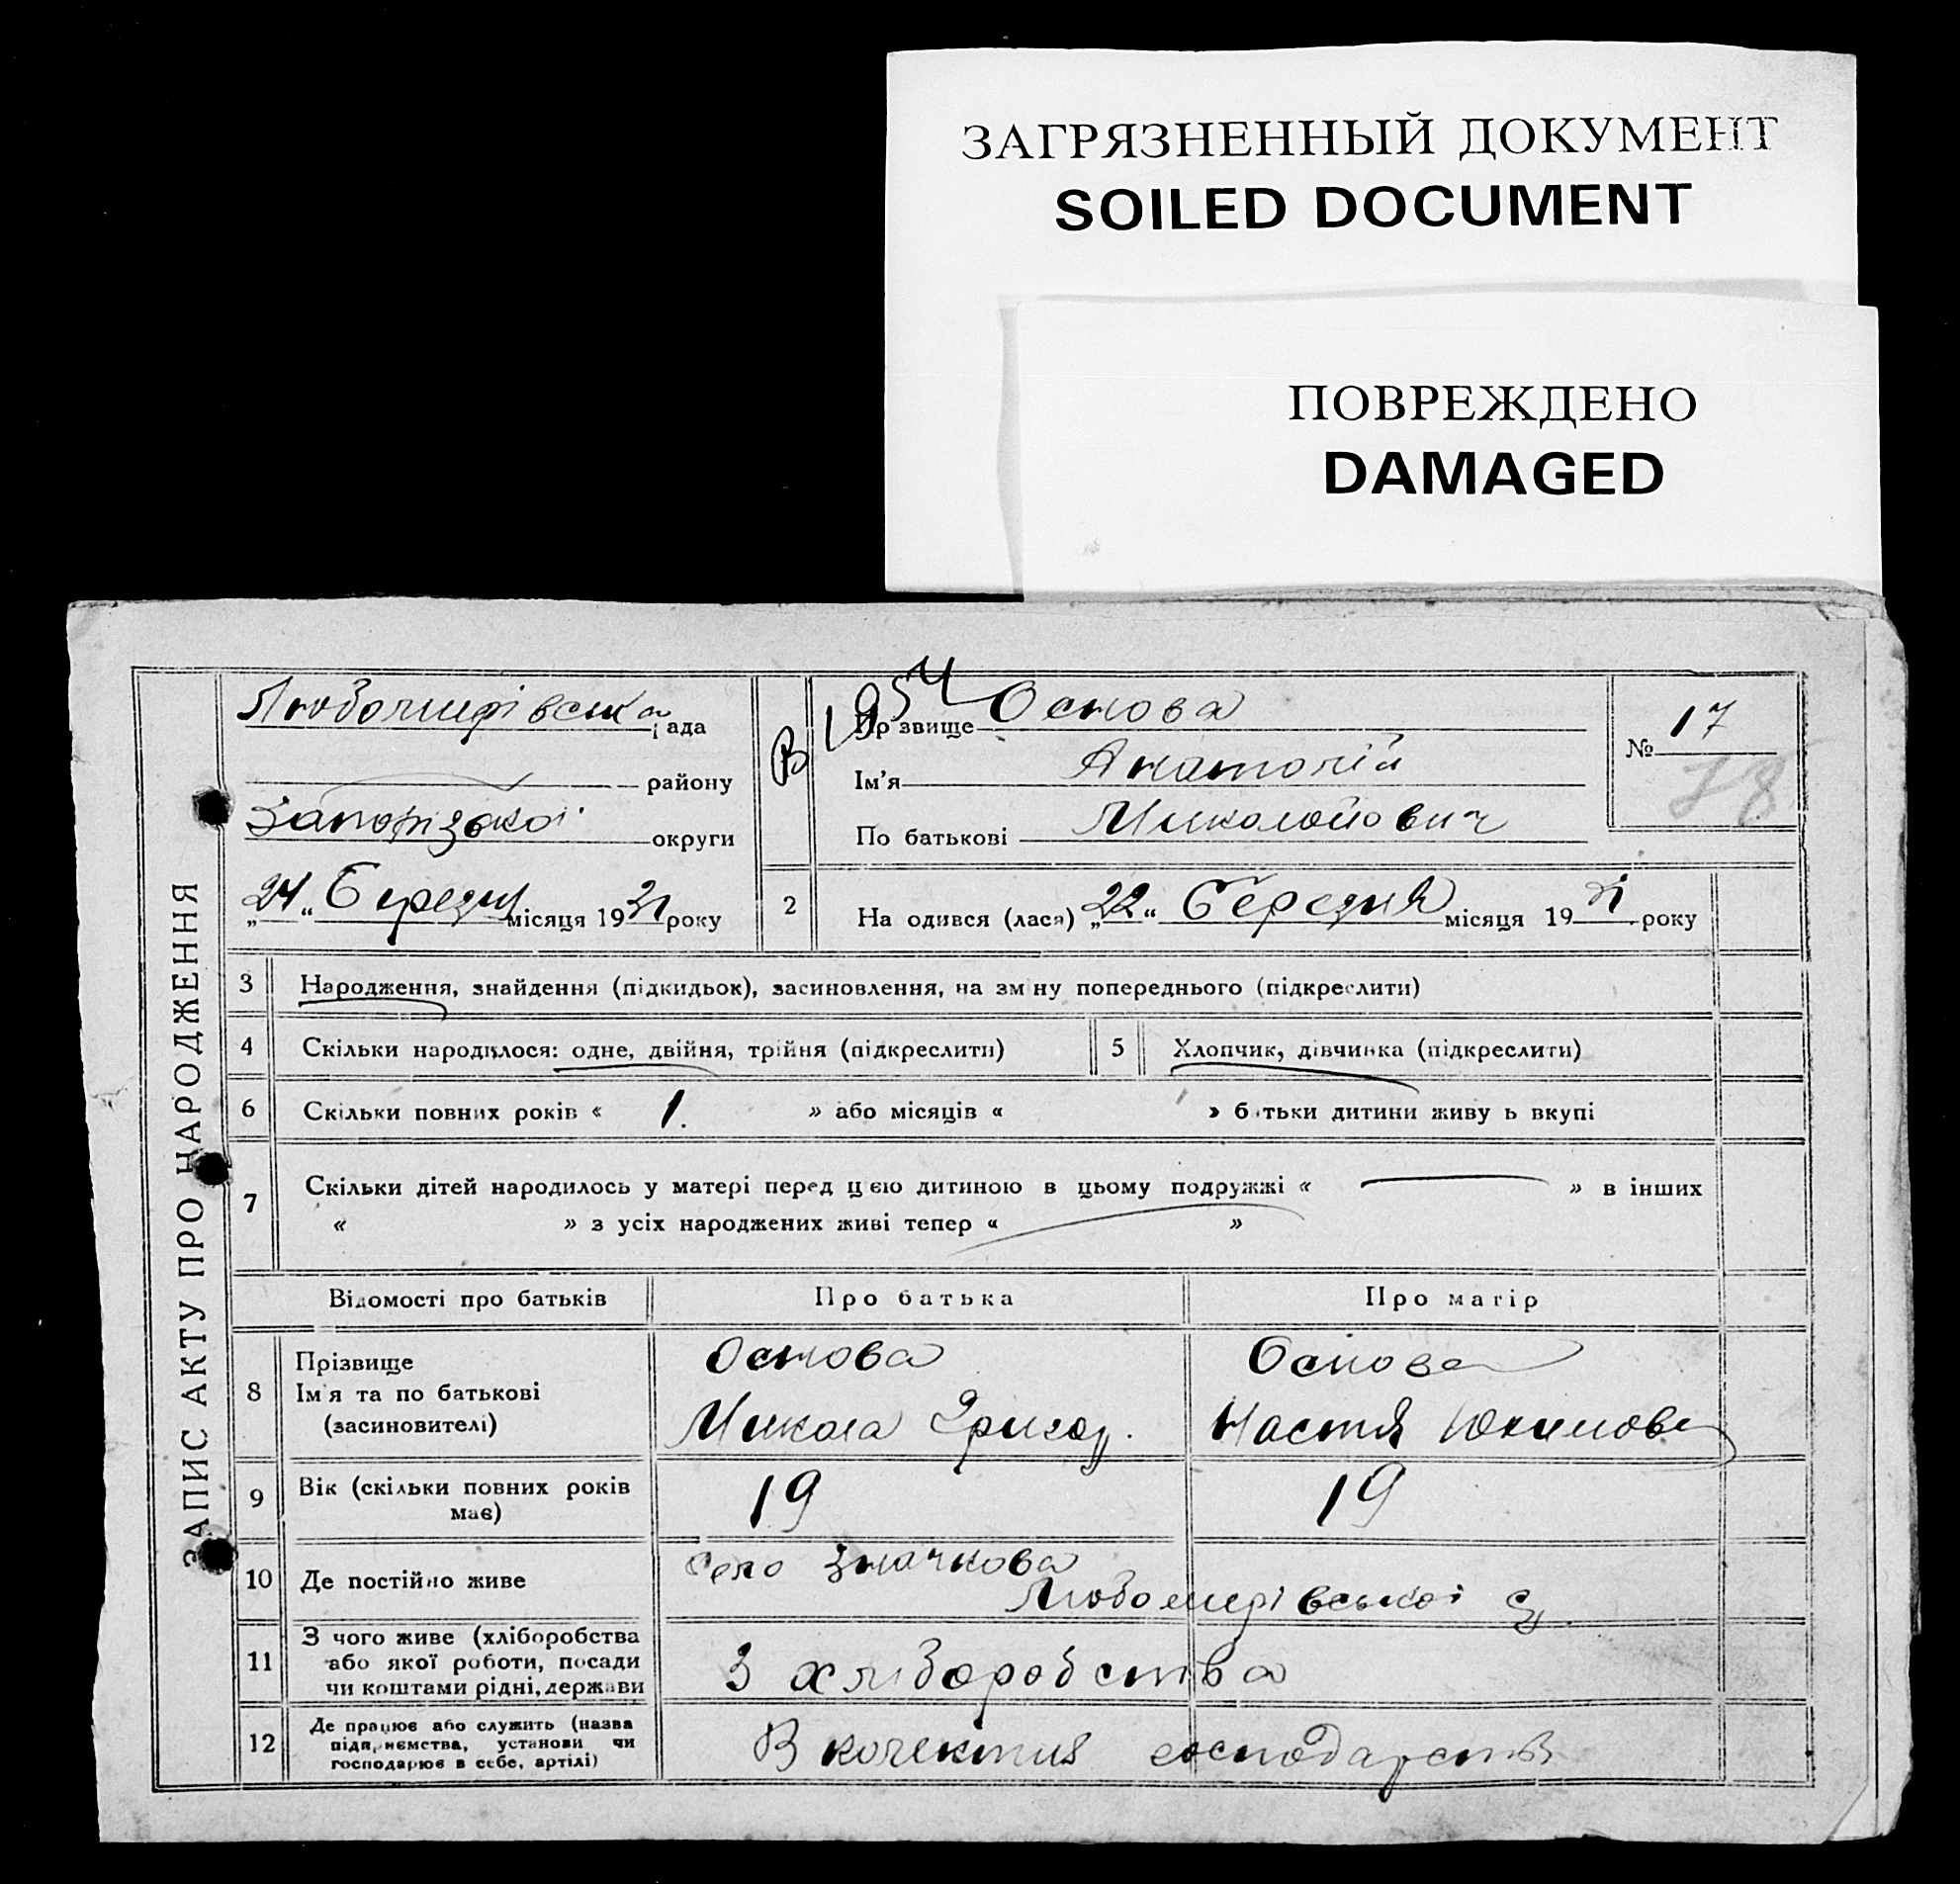 ЗАГРЯЗНЕННЫЙ ДОКУМЕНТ
SOILED DOCUMENT
ПОВРЕЖДЕНО
DAMAGED
ЗАПИС АКТУ ПРО НАРОДЖЕННЯ
Любомирівська рада
району
Запорізької округи
„24“ Березня місяця 1931 року
В 1954
Прізвище Основа
Ім'я Анатолій
По батькові Миколойович
№ 17
78
2 Народився (лася) „22“ Березня місяця 1931 року
3 Народження, знайдення (підкидьок), засиновлення, на зміну попереднього (підкреслити)
4 Скільки народилося: одне, двійня, трійня (підкреслити)
5 Хлопчик, дівчинка (підкреслити)
6 Скільки повних років « 1. » або місяців « » батьки дитини живуть вкупі
7 Скільки дітей народилось у матері перед цією дитиною в цьому подружжі « — » в інших
« » з усіх народжених живі тепер « »
Відомості про батьків Про батька Про матір
8 Прізвище Основа Основа
Ім'я та по батькові Микола Григор. Настя Юхимова
(засиновителі)
9 Вік (скільки повних років 19 19
має)
10 Де постійно живе село Значкова
Любомирівської с/р
11 З чого живе (хліборобства
або якої роботи, посади З хліборобства
чи коштами рідні, держави
12 Де працює або служить (назва
підприємства, установи чи В колектив господарств
господарює в себе, артілі)